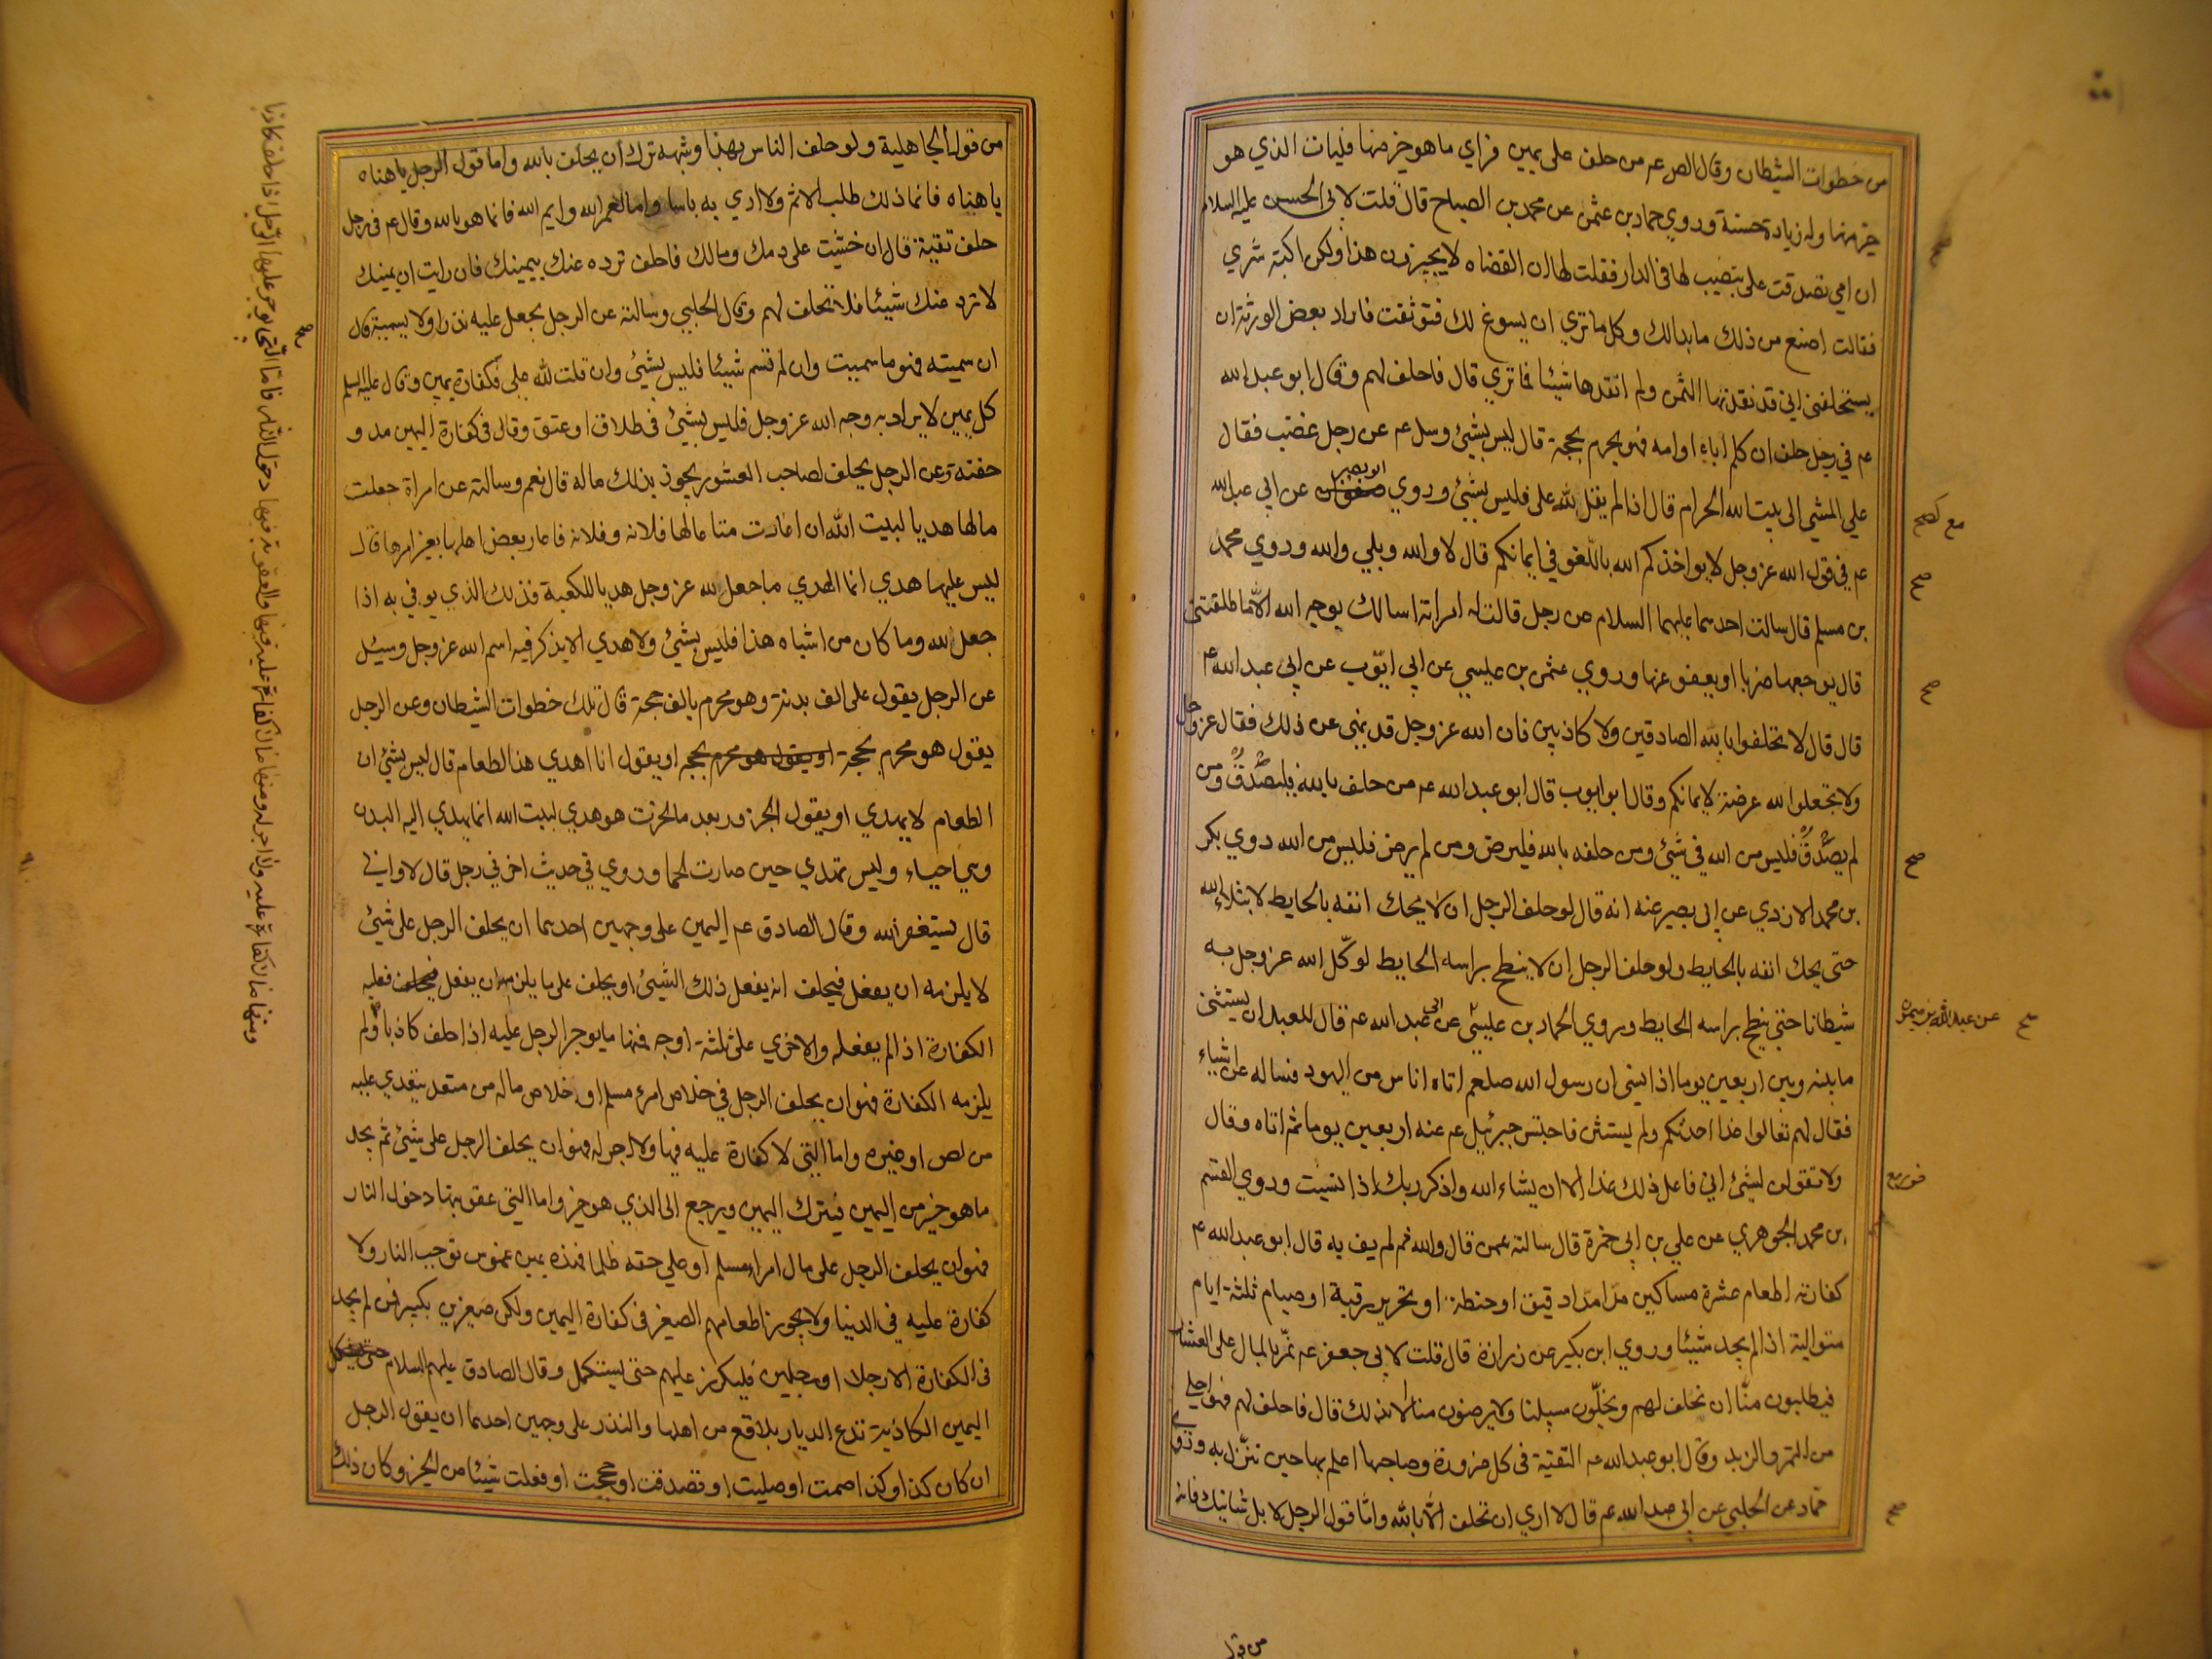 من خطوات الشيطان وقال الص عم من حلف على يمين فراي ما هو خير منها فليات الذي هو
خير منها وله زيادة حسنة وروي حماد بن عثمن عن محمد بن الصباح قال قلت لابي الحسن عليه السلام
ان امي تصدقت على بنصيب لها في الدار فقلت لها ان القضاه لا يجيزون هذا ولكن اكتبه شري
فقالت اصنع من ذلك ما بدالك وكل ما تري ان يسوغ لك فتوثقت فاراد بعض الورثة ان
يستحلفني اني قد نقدتها الثمن ولم انقدها شيئا فما تري قال فاحلف لهم وقال ابو عبد الله
عم في رجل حلف ان كلم اباه او امه فهو يحرم بحجة قال ليس بشيئ وسل عم عن رجل غضب فقال
علي المشي الى بيت الله الحرام قال اذا لم يقل لله على فليس بشيئ وروي ابو بصير عن ابي عبد الله
عم في قول الله عز وجل لا يواخذكم الله باللغو في ايمانكم قال لا والله وبلي والله وروي محمد
بن مسلم قال سالت احدهما عليهما السلام عن رجل قالت له امراته اسالك بوجه الله الا ما طلقتني
قال يوجعها ضربا او يعفو عنها وروي عثمن بن عيسي عن ابي ايوب عن ابي عبد الله عم
قال قال لا تحلفوا بالله الصادقين ولا كاذبين فان الله عز وجل قد نهي عن ذلك فقال عز وجل
ولا تجعلوا الله عرضة لايمانكم وقال ابو ايوب قال ابو عبد الله عم من حلف بالله فليصدق ومن
لم يصدق فليس من الله في شيئ ومن حلف له بالله فليرض ومن لم يرض فليس من الله روي بكر
بن محمد الازدي عن ابي بصير عنه انه قال لو حلف الرجل ان لا يحك انفه بالحايط لابتلاه الله
حتى يحك انفه بالحايط ولو حلف الرجل ان لا ينطح براسه الحايط لوكل الله عز وجل به
شيطانا حتى ينطح براسه الحايط وروي الحماد بن عيسي عن ابي عبد الله عم قال للعبد ان يستثني
عن عبد الله بن ميمون
ما بينه وبين اربعين يوما اذا نسي ان رسول الله صلعم اتاه اناس من اليهود فساله عن اشياء
فقال لهم تعالوا غدا احدثكم ولم يستثن فاحتبس جبرئيل عم عنه اربعين يوما ثم اتاه وقال
ولا تقولن لشيئ اني فاعل ذلك غدا الا ان يشاء الله واذكر ربك اذا نسيت وروي القسم
بن محمد الجوهري عن علي بن ابي حمزة قال سالته عمن قال والله ثم لم يف به قال ابو عبد الله عم
كفارته اطعام عشرة مساكين مدا مدا دقيق او حنطة او تحرير رقبة او صيام ثلثة ايام
متوالية اذا لم يجد شيئا وروي ابن بكير عن زرارة قال قلت لابي جعفر عم نمر بالمال على العشار
فيطلبون منا ان نحلف لهم ويخلون سبيلنا ولا يرضون منا الا بذلك قال فاحلف لهم فهو احلي
من التمر والزبد وقال ابو عبد الله عم التقية في كل ضرورة وصاحبها اعلم بها حين تنزل به وروي
حماد عن الحلبي عن ابي عبد الله عم قال لا اري ان تحلف الا بالله واما قول الرجل لا بل شانيك فانه
من قول
من قول الجاهلية ولو حلف الناس بهذا وشبهه ترك ان يحلف بالله واما قول الرجل يا هناه
يا هناه فانما ذلك طلب الاثم ولا اري به باسا واما لعمر الله وايم الله فانما هو بالله وقال عم في رجل
حلف تقية قال ان خشيت على دمك ومالك فاحلف ترده عنك بيمينك فان رايت ان يمينك
لا ترد عنك شيئا فلا تحلف لهم وقال الحلبي وسالته عن الرجل يجعل عليه نذرا ولا يسميه قال
ان سميته فهو ما سميت وان لم تسم شيئا فليس بشيئ وان قلت لله على فكفارة يمين وقال عليه السلم
كل يمين لا يراد به وجه الله عز وجل فليس بشيئ في طلاق او عتق وقال في كفارة اليمين مد و
حفنه وعن الرجل يحلف لصاحب العشور يحوز بذلك ماله قال نعم وسالته عن امراة جعلت
مالها هديا لبيت الله ان اعارت متاعا لها فلانه وفلانه فاعار بعض اهلها بغير امرها قال
ليس عليها هدي انما الهدي ما جعل لله عز وجل هديا للكعبة فذلك الذي يوفي به اذا
جعل لله وما كان من اشباه هذا فليس بشيئ ولا هدي الا يذكر فيه اسم الله عز وجل وسيئل
عن الرجل يقول على الف بدنة وهو محرم بالف حجة قال تلك خطوات الشيطان وعن الرجل
يقول هو محرم بحجة او يقول هو محرم بحجه او يقول انا اهدي هذا الطعام قال ليس بشيئ ان
الطعام لا يهدي او يقول الجزور بعد ما نحرت هو هدي لبيت الله انما يهدي اليه البدن
وهي احياء وليس تهدي حين صارت لحما وروي في حديث اخر في رجل قال لا وابي
قال يستغفر الله وقال الصادق عم اليمين على وجهين احدهما ان يحلف الرجل على شيئ
لا يلزمه ان يفعل فيحلف انه يفعل ذلك الشيئ او يحلف على ما يلزمه ان يفعل فعليه
الكفارة اذا لم يفعله والاخري على ثلثة اوجه فمنها ما يوجر الرجل عليه اذا حلف كاذبا ولم
يلزمه الكفارة فهو ان يحلف الرجل في خلاص امرء مسلم او خلاص ماله من متعد يتعدي عليه
من لص او غيره واما التي لا كفارة عليه فيها ولا اجر له فهو ان يحلف الرجل على شيئ ثم يجد
ما هو خير من اليمين فيترك اليمين ويرجع الى الذي هو خير واما التي عقوبتها دخول النار
فهو ان يحلف الرجل على مال امراء مسلم او على حقه ظلما فهذه يمين غموس توجب النار ولا
كفارة عليه في الدنيا ولا يجوز اطعامهم الصغر في كفارة اليمين ولكن صغيرين بكبير فمن لم يجد
في الكفارة الا رجلا او رجلين فليكرر عليهم حتى يستكمل وقال الصادق عليهم السلام
اليمين الكاذبة تدع الديار بلاقع من اهلها والنذر على وجهين احدهما ان يقول الرجل
ان كان كذا وكذا صمت او صليت او تصدقت او حججت او فعلت شيئا من الخير وكان ذلك
ومنها ما لا كفارة عليه ولا اجر له ومنها ما لا كفارة عليه فيها والعقوبة فيها دخول النار فاما التي يوجر عليها الرجل اذا حلف كاذبا